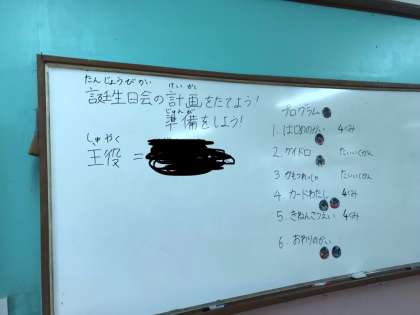 たんじょうびかい けいかく
誕生日会の計画をたてよう!
じゅんび
準備をしよう!
しゅやく
主役 =
プログラム
1. はじめのかい 4くみ
2. ケイドロ たいいくかん
3 かもつれっしゃ たいいくかん
4 カードわたし 4くみ
5. きねんさつえい 4くみ
6. おわりのかい